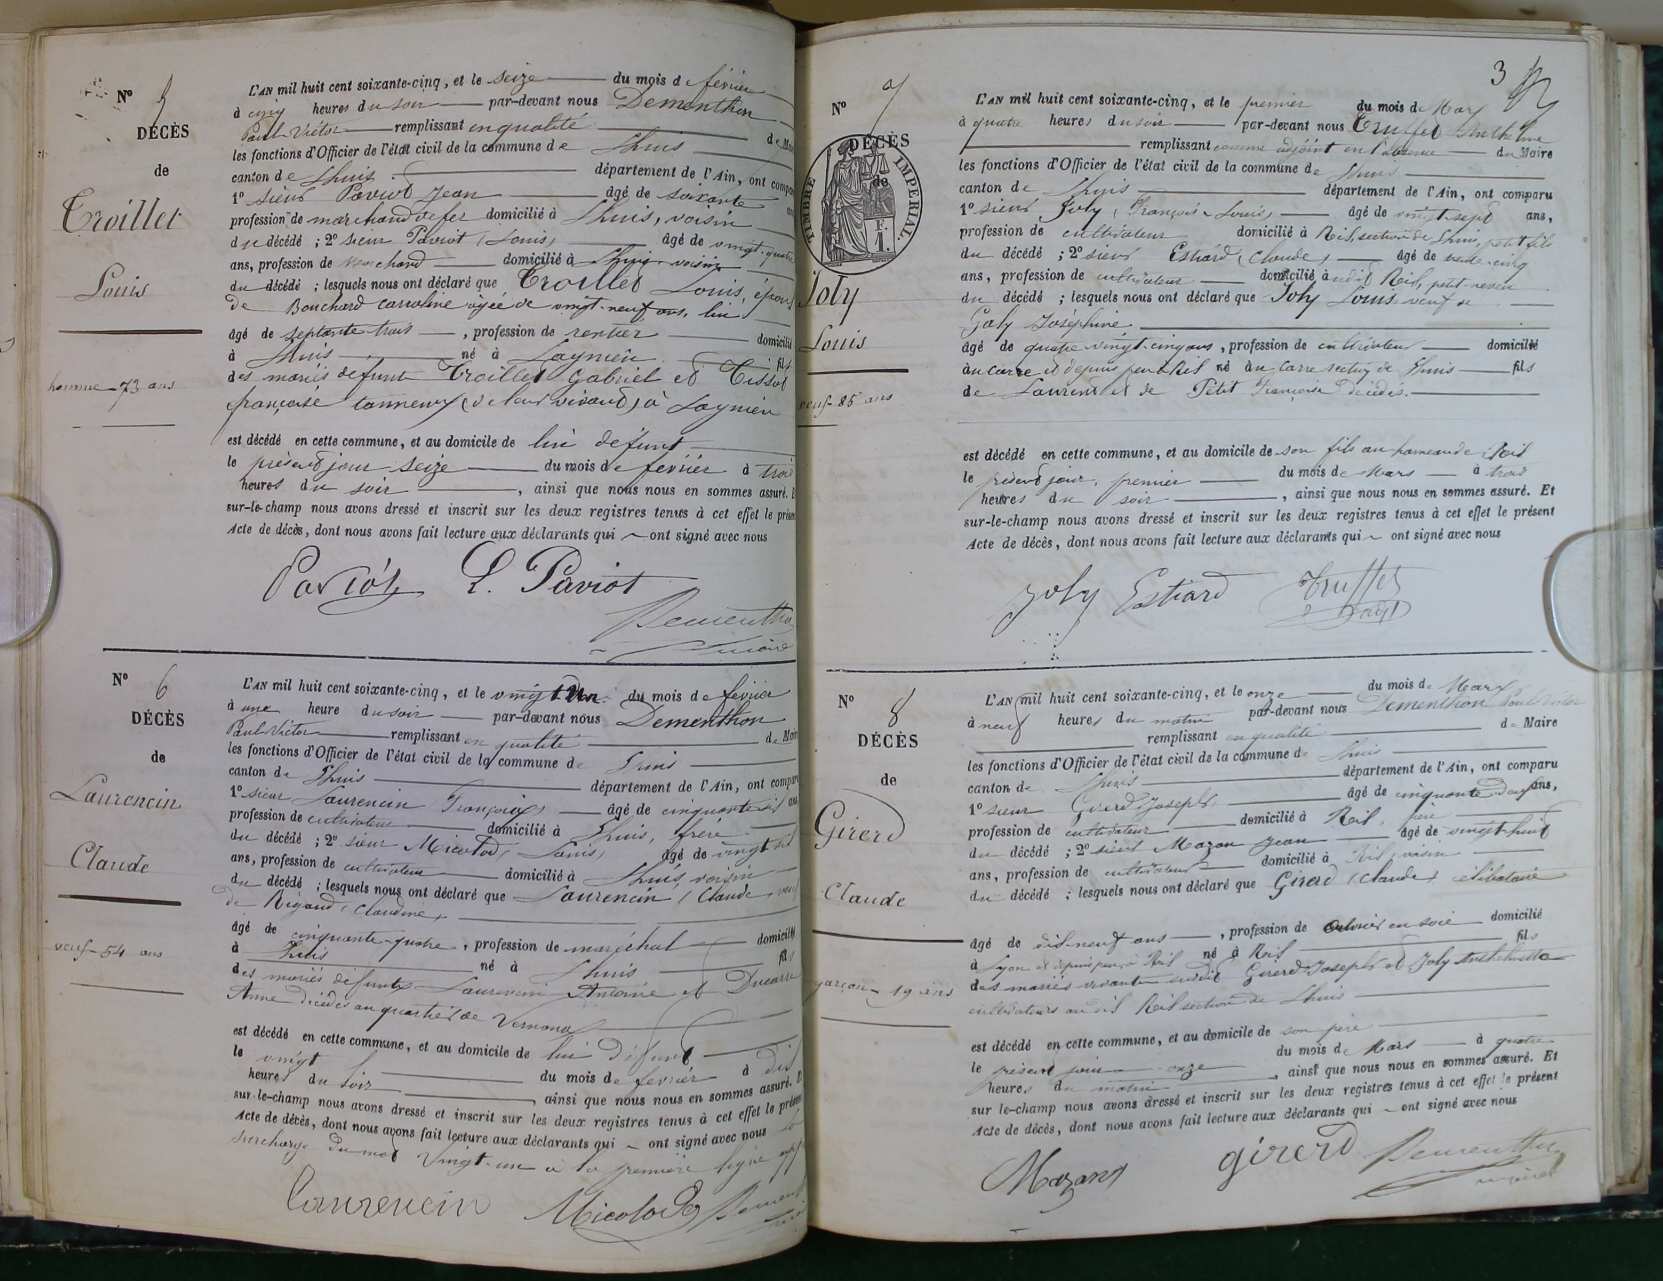 N° 5
DÉCÈS
de
Troillet
Louis
homme - 73 ans
L'AN mil huit cent soixante-cinq, et le seize du mois de février
à cinq heures du soir par-devant nous Dementhon
Paul Victor remplissant en qualité de
les fonctions d'Officier de l'état civil de la commune de Lhuis
canton de Lhuis département de l'Ain, ont compa
1° sieur Paviot Jean âgé de soixante
profession de marchand de fer domicilié à Lhuis, voisin
du décédé ; 2° sieur Paviot (Louis) âgé de vingt-quatre
ans, profession de marchand domicilié à Lhuis voisin
du décédé ; lesquels nous ont déclaré que Troillet Louis, époux
de Bouchard caroline âgée de vingt-neuf ans, lui
âgé de septante-trois, profession de rentier domicilié
à Lhuis né à Lagnieu fils
des mariés défunt Troillet Gabriel et Tissot
françoise tanneurs (de leur vivant) à Lagnieu
est décédé en cette commune, et au domicile de lui défunt
le présent jour seize du mois de février à trois
heures du soir, ainsi que nous nous en sommes assuré. E
sur-le-champ nous avons dressé et inscrit sur les deux registres tenus à cet effet le présen
Acte de décès, dont nous avons fait lecture aux déclarants qui ont signé avec nous
Paviot L. Paviot
Dementho
N° 6
DÉCÈS
de
Laurencin
Claude
veuf - 54 ans
L'AN mil huit cent soixante-cinq, et le vingt Un du mois de février
à une heure du soir par-devant nous Dementhon
Paul Victor remplissant en qualité de Mair
les fonctions d'Officier de l'état civil de la commune de Lhuis
canton de Lhuis département de l'Ain, ont compar
1° sieur Laurencin François, âgé de cinquante six ans
profession de cultivateur domicilié à Lhuis, frère
du décédé ; 2° sieur Micolod, Louis, âgé de vingt six
ans, profession de cultivateur domicilié à Lhuis, voisin
du décédé ; lesquels nous ont déclaré que Laurencin (Claude, veuf
de Rigaud, Claudine,
âgé de cinquante-quatre, profession de maréchal domicilié
à Lhuis né à Lhuis fils
des mariés défunts Laurencin Antoine et Ducarre
Anne décédés au quartier de
est décédé en cette commune, et au domicile de lui défunt
le vingt du mois de février à dix
heures du soir, ainsi que nous nous en sommes assuré. E
sur-le-champ nous avons dressé et inscrit sur les deux registres tenus à cet effet le présen
Acte de décès, dont nous avons fait lecture aux déclarants qui ont signé avec nous
surcharge du mot Vingt-un à la première ligne
Laurencin Micolod
3
N° 7
DÉCÈS
de
TIMBRE IMPÉRIAL.
F.
1.
Joly
Louis
veuf - 85 ans
L'AN mil huit cent soixante-cinq, et le premier du mois de Mars
à quatre heures du soir par-devant nous Truffet Anthelme
remplissant comme adjoint en l'absence du Maire
les fonctions d'Officier de l'état civil de la commune de Lhuis
canton de Lhuis département de l'Ain, ont comparu
1° sieur Joly, François-Louis, âgé de vingt-sept ans,
profession de cultivateur domicilié à Rix, section de Lhuis, petit fils
du décédé ; 2° sieur Estiard, Claude, âgé de trente-cinq
ans, profession de cultivateur domicilié à Rix, petit-neveu
du décédé ; lesquels nous ont déclaré que Joly Louis veuf de
Goly Joséphine
âgé de quatre vingt-cinq ans, profession de cultivateur domicilié
au Carre et depuis peu à Rix né au Carre section de Lhuis fils
de Laurent et de Petit Françoise décédés.
est décédé en cette commune, et au domicile de son fils au hameau de Rix
le présent jour, premier du mois de Mars à trois
heures du soir, ainsi que nous nous en sommes assuré. Et
sur-le-champ nous avons dressé et inscrit sur les deux registres tenus à cet effet le présent
Acte de décès, dont nous avons fait lecture aux déclarants qui ont signé avec nous
Joly Estiard Truffet
N° 8
DÉCÈS
de
Girerd
Claude
garçon - 19 ans
L'AN mil huit cent soixante-cinq, et le onze du mois de Mars
à neuf heures du matin par-devant nous Dementhon Paul Victor
remplissant en qualité de Maire
les fonctions d'Officier de l'état civil de la commune de Lhuis
canton de Lhuis département de l'Ain, ont comparu
1° sieur Girerd Joseph âgé de cinquante deux ans,
profession de cultivateur domicilié à Rix, père
du décédé ; 2° sieur Mazan Jean âgé de vingt-huit
ans, profession de cultivateur domicilié à Rix, voisin
du décédé ; lesquels nous ont déclaré que Girerd (Claude), célibataire
âgé de dix-neuf ans, profession de ouvrier en soie domicilié
à Lyon et depuis peu à Rix né à Rix fils
des mariés vivants Girerd Joseph et Joly Anthelmette
cultivateurs au dit Rix section de Lhuis
est décédé en cette commune, et au domicile de son père
le présent jour onze du mois de Mars à quatre
heures du matin, ainsi que nous nous en sommes assuré. Et
sur le-champ nous avons dressé et inscrit sur les deux registres tenus à cet effet le présent
Acte de décès, dont nous avons fait lecture aux déclarants qui ont signé avec nous
Mazan girerd Dementhon